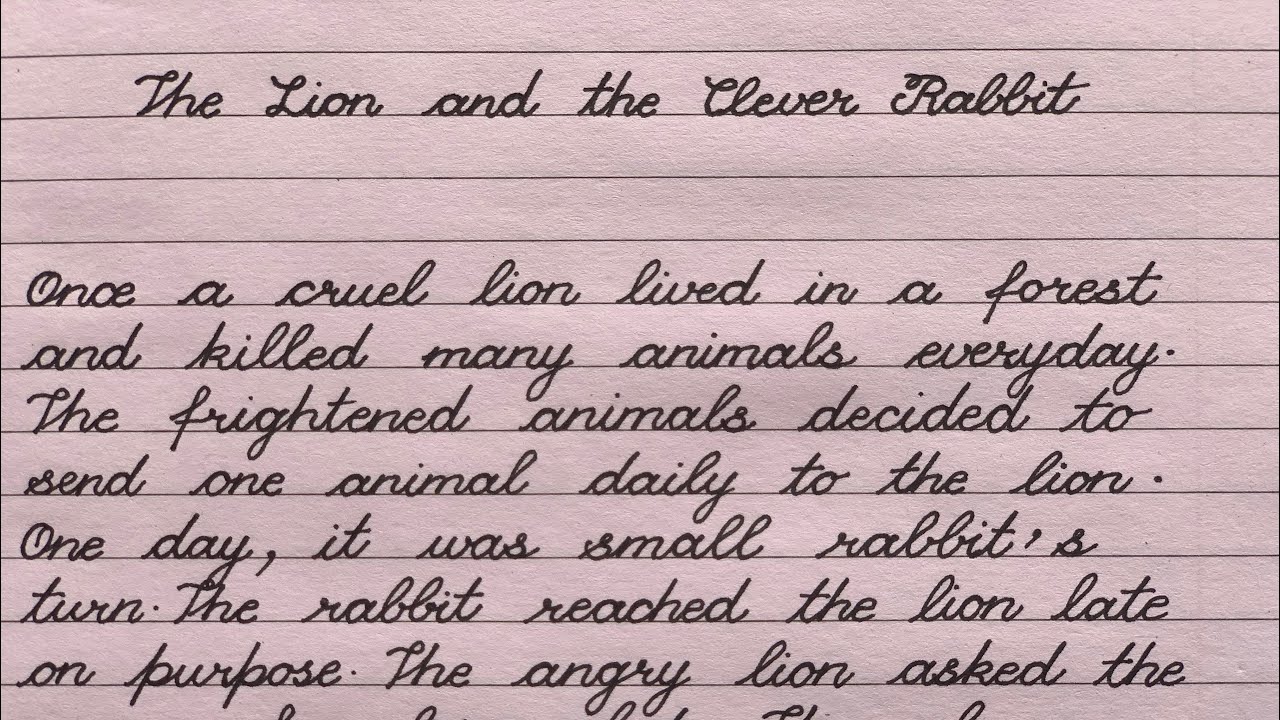 The Lion and the Clever Rabbit
Once a cruel lion lived in a forest
and killed many animals everyday.
The frightened animals decided to
send one animal daily to the lion.
One day, it was small rabbit's
turn. The rabbit reached the lion late
on purpose. The angry lion asked the